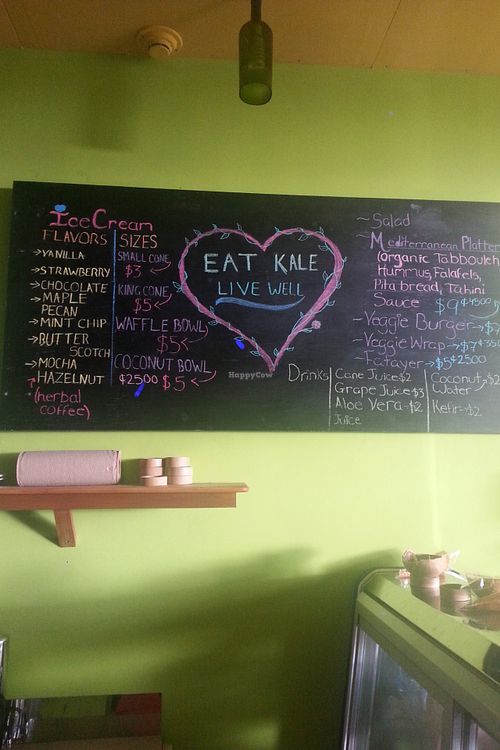 Ice Cream
FLAVORS
→VANILLA
→STRAWBERRY
→CHOCOLATE
→MAPLE
PECAN
→MINT CHIP
→BUTTER
SCOTCH
→MOCHA
HAZELNUT
(herbal
coffee)
SIZES
SMALL CONE
$3
KING CONE
$5
WAFFLE BOWL
$5
COCONUT BOWL
$2500 $5
EAT KALE
LIVE WELL
HappyCow
~Salad
~Mediterranean Platter
(organic Tabbouleh
Hummus, Falafels,
Pita bread, Tahini
Sauce $9 $4500
~Veggie Burger~$7
~Veggie Wrap~$7
~Fatayer~$5 $2500
Drinks
Cane Juice $2
Grape Juice $3
Aloe Vera -$2
Juice
Coconut $2
Water
Kefir~$2